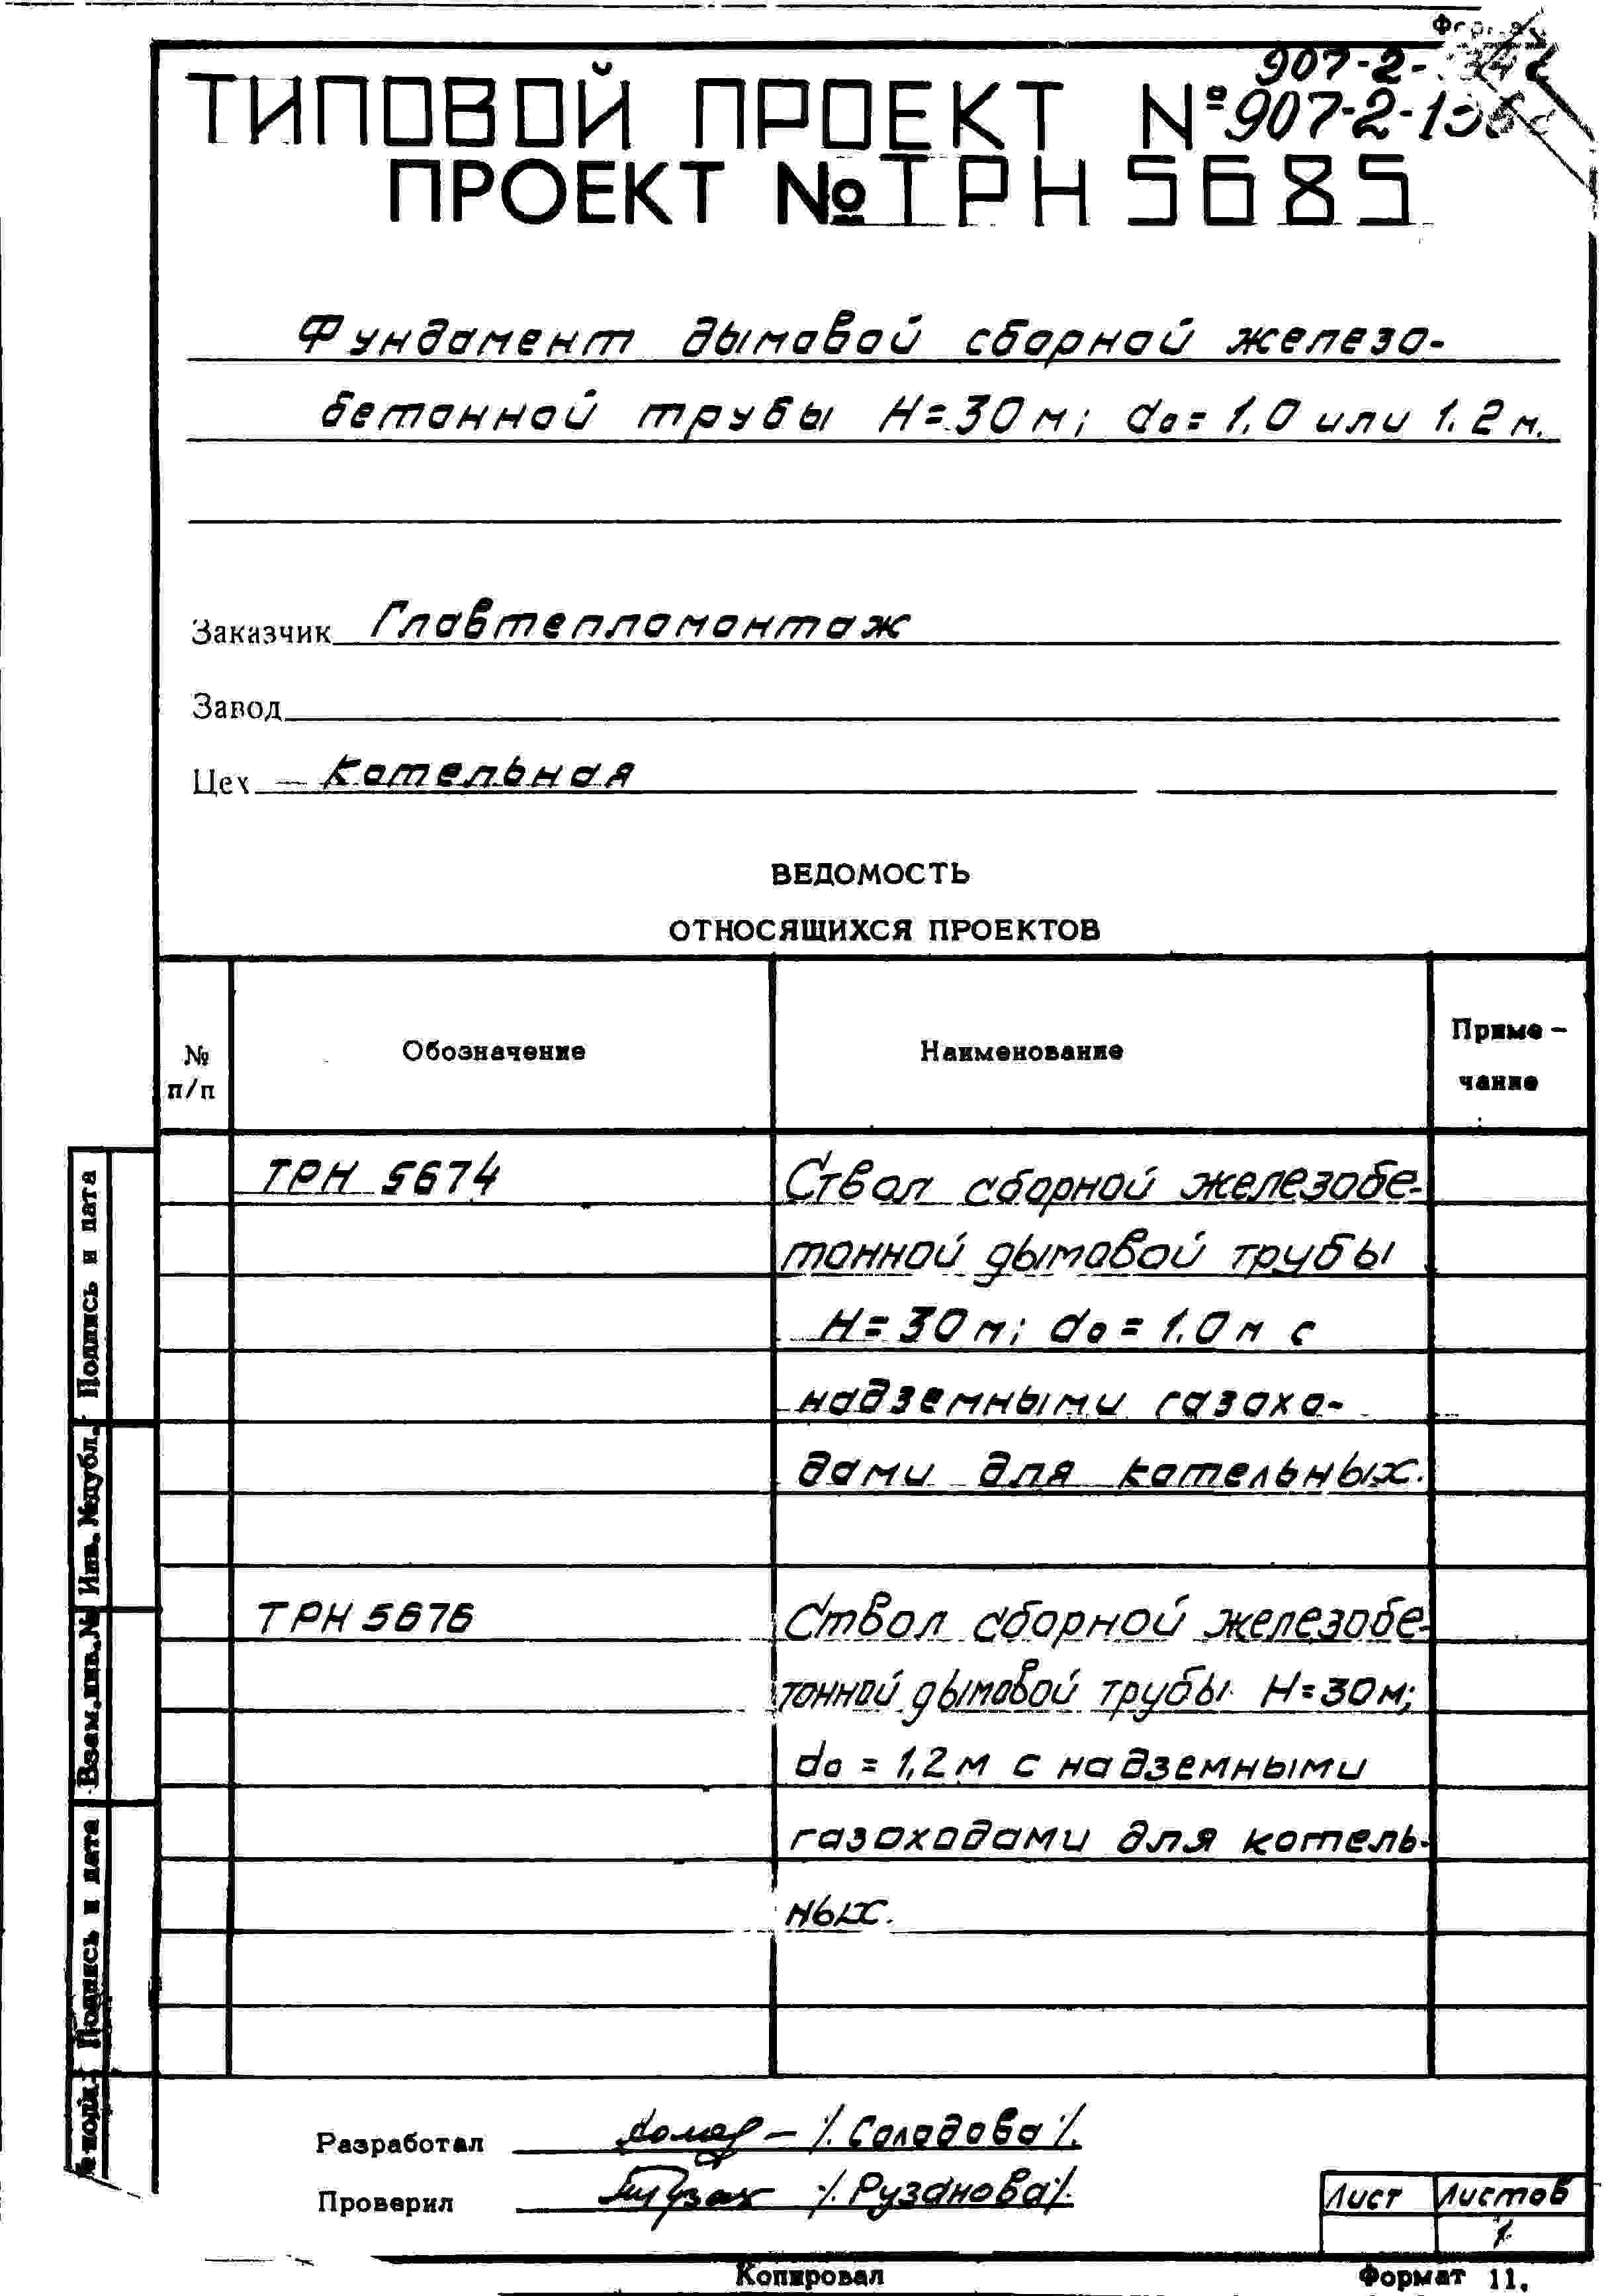 907-2-
ТИПОВОЙ ПРОЕКТ №
ПРОЕКТ № ТРН 5685
Фундамент дымовой сборной железо-
бетонной трубы H=30м; d₀=1,0 или 1.2м.
Заказчик Главтепломонтаж
Завод
Цех – Котельная
ВЕДОМОСТЬ
ОТНОСЯЩИХСЯ ПРОЕКТОВ
№ п/п
Обозначение
Наименование
Приме-
чание
ТРН 5674
Ствол сборной железобе-
тонной дымовой трубы
H=30м; d₀=1.0м с
надземными газохо-
дами для котельных.
ТРН 5676
Ствол сборной железобе-
тонной дымовой трубы H=30м;
d₀=1,2м с надземными
газоходами для котель-
ных.
Подпись и дата
Инв. №дубл.
Взам.инв.№
Подпись и дата
№ подл.
Разработал /Солодова/.
Проверил /Рузанова/.
Лист
Листов
1
Копировал
Формат 11.